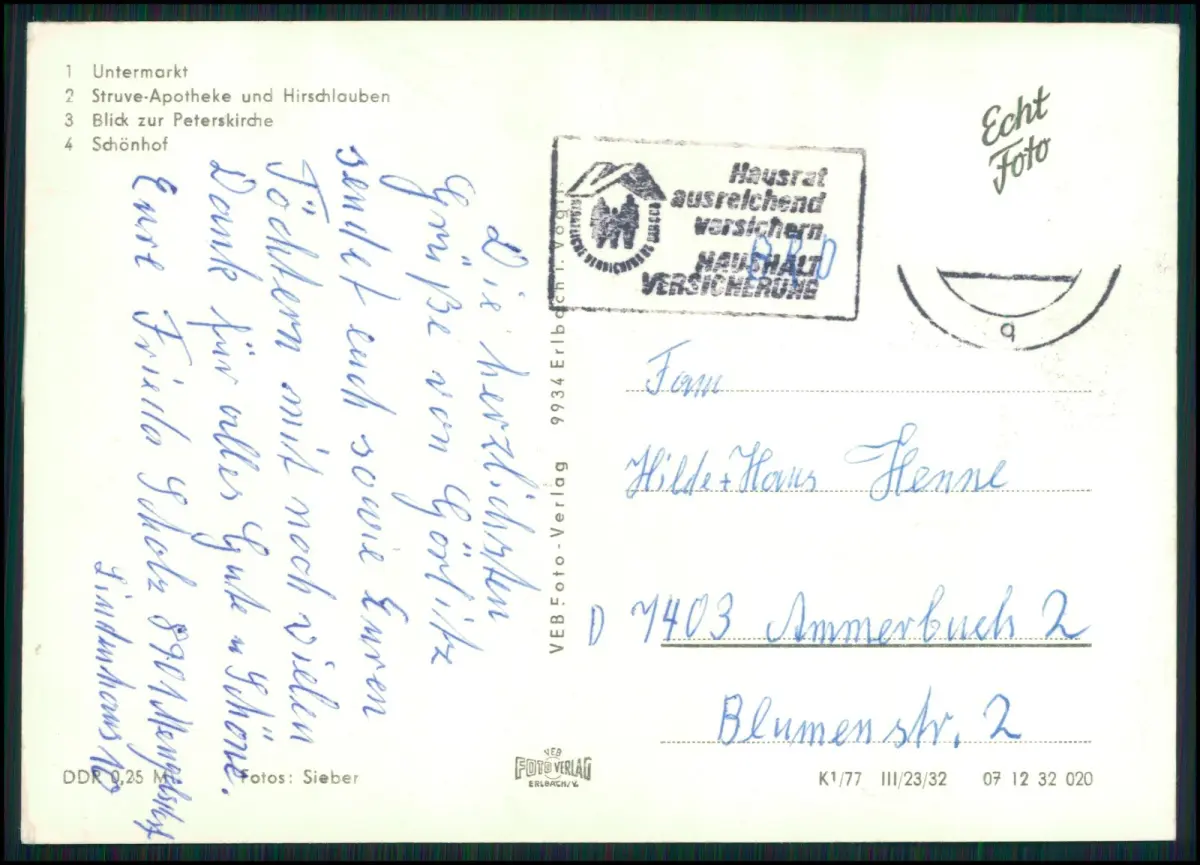 1 Untermarkt
2 Struve-Apotheke und Hirschlauben
3 Blick zur Peterskirche
4 Schönhof
Die herzlichsten
Grüße von Görlitz
sendet euch sowie Euren
Töchtern mit noch vielen
Dank für alles Gute u Schöne.
Eure Frieda Scholz 8901
Lindenhaus 10
DDR 0,25 M
Fotos: Sieber
VEB Foto-Verlag 9934 Erlbach i. Vogtl.
VEB
FOTO VERLAG
ERLBACH/V.
Hausrat
ausreichend
versichern
HAUSHALT
VERSICHERUNG
BRD
q
Echt
Foto
Fam
Hilde + Hans Henne
D 7403 Ammerbuch 2
Blumenstr. 2
K1/77 III/23/32 07 12 32 020